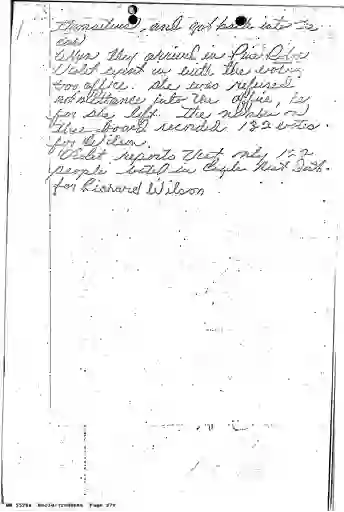 themselves, and got back into the
car.
When they arrived in Pine Ridge
Violet went in with the voting
to office. She was refused
admittance into the office, 
for she left. The number on
the board recorded 182 votes
for Wilson.
Violet reports that only 122
people voted in Eagle Nest Dist.
for Richard Wilson
Page